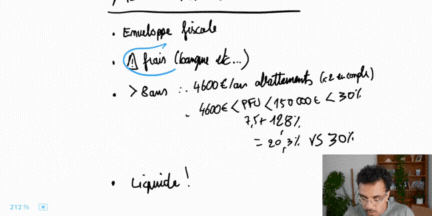 • Enveloppe fiscale
• ⚠ frais (banque etc...)
• > 8ans : 4600€/an abattements (x2 en couple)
4600€ < PFU < 150 000€ < 30%
7,5 + 12,8%
= 20,3% VS 30%
• Liquide !
212%